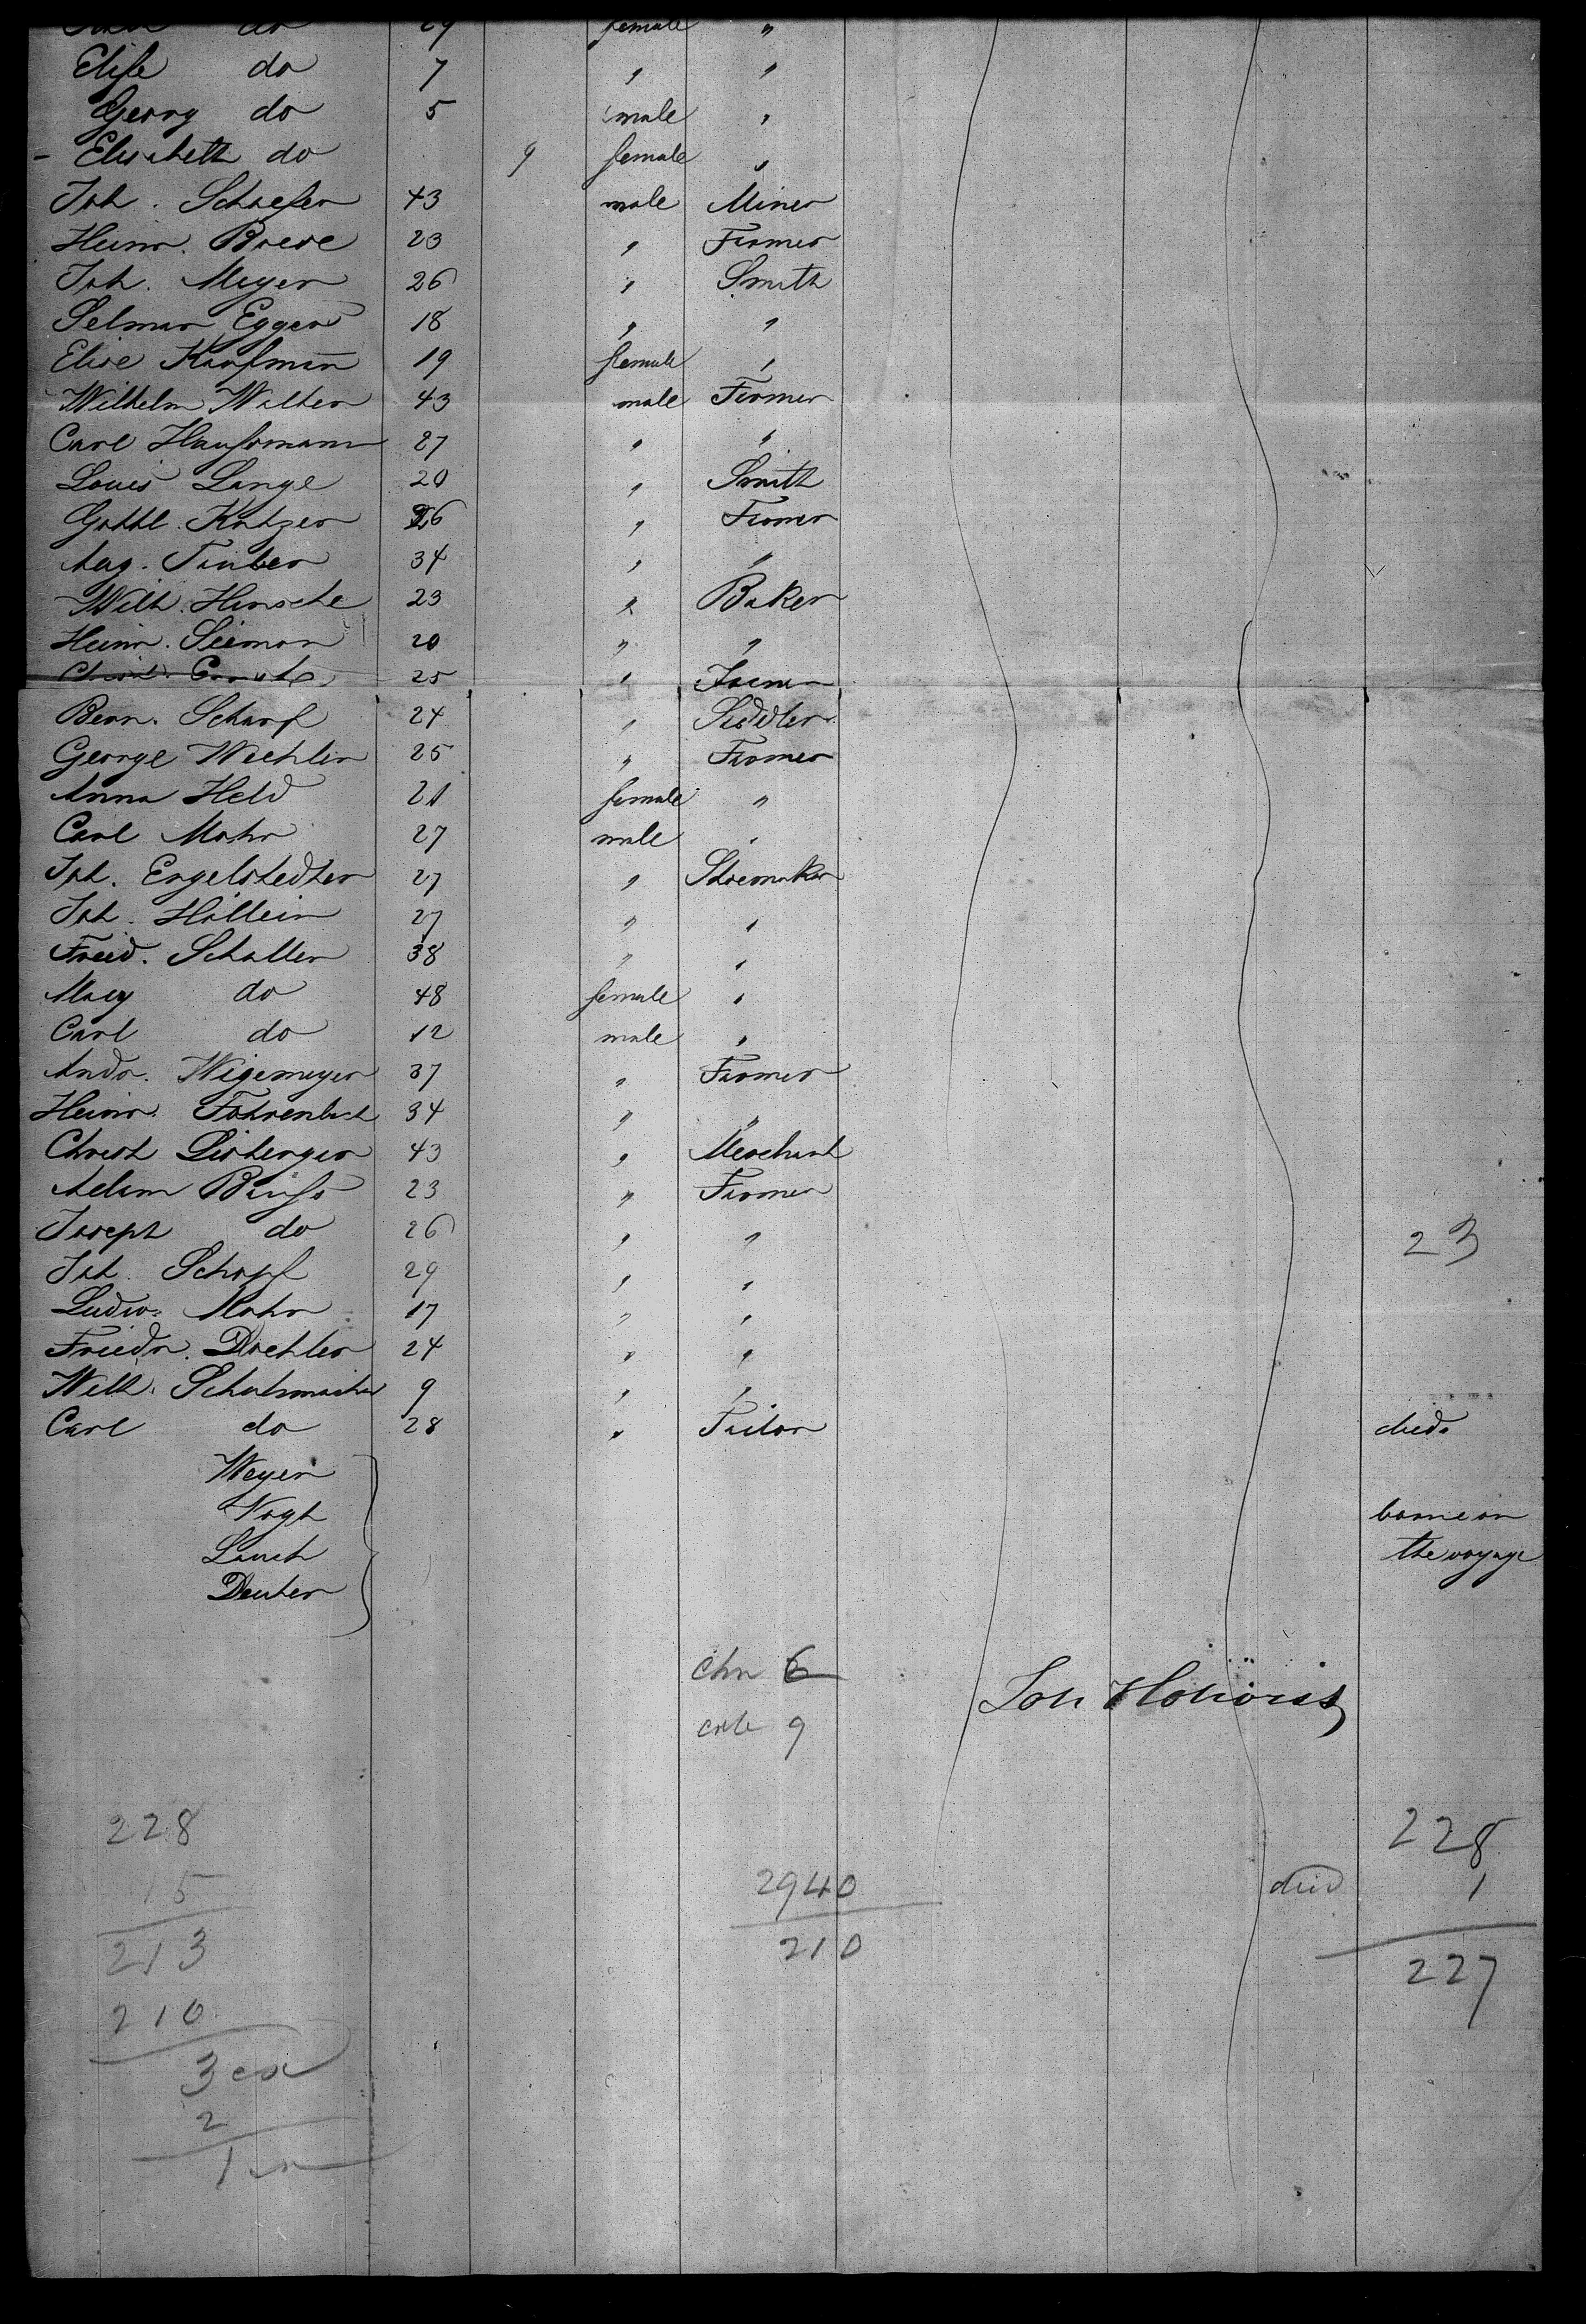 do 29 female "
Elise do 7 " "
Georg do 5 male "
- Elisabeth do 9 female "
Joh. Schaefer 43 male Miner
Heinr. Boese 23 " Farmer
Joh. Meyer 26 " Smith
Selmar Eggers 18 " "
Elise Kaufmann 19 female "
Wilhelm Walter 43 male Farmer
Carl Haussmann 27 " "
Louis Lange 20 " Smith
Gottl. Katzer 26 " Farmer
Aug. Tauber 34 " "
Wilh. Hinsche 23 " Baker
Heinr. Siemon 20 " "
25 " Farmer
Bern. Scharf 24 " Saddler
George Wechler 25 " Farmer
Anna Held 21 female "
Carl Mohr 27 male "
Joh. Engelstedter 27 " Shoemaker
Joh. Höllein 27 " "
Fried. Schaller 38 " "
Mary do 48 female "
Carl do 12 male "
Andr. Wigemeyer 37 " Farmer
Heinr. Fahrenbach 34 " "
Christ Lisberger 43 " Merchant
Adam Bauss 23 " Farmer
Joseph do 26 " " 23
Joh. Schopf 29 " "
Ludw. Mohr 17 " "
Friedr. Drehler 24 " "
Wilh. Schuhmacher 9 " "
Carl do 28 " Tailor died.
Weyer
Vogt borne on
Lauch the voyage
Deuter
chn 6
Joh
9
228 228
15 2940 died 1
213 210 227
210
3
2
1